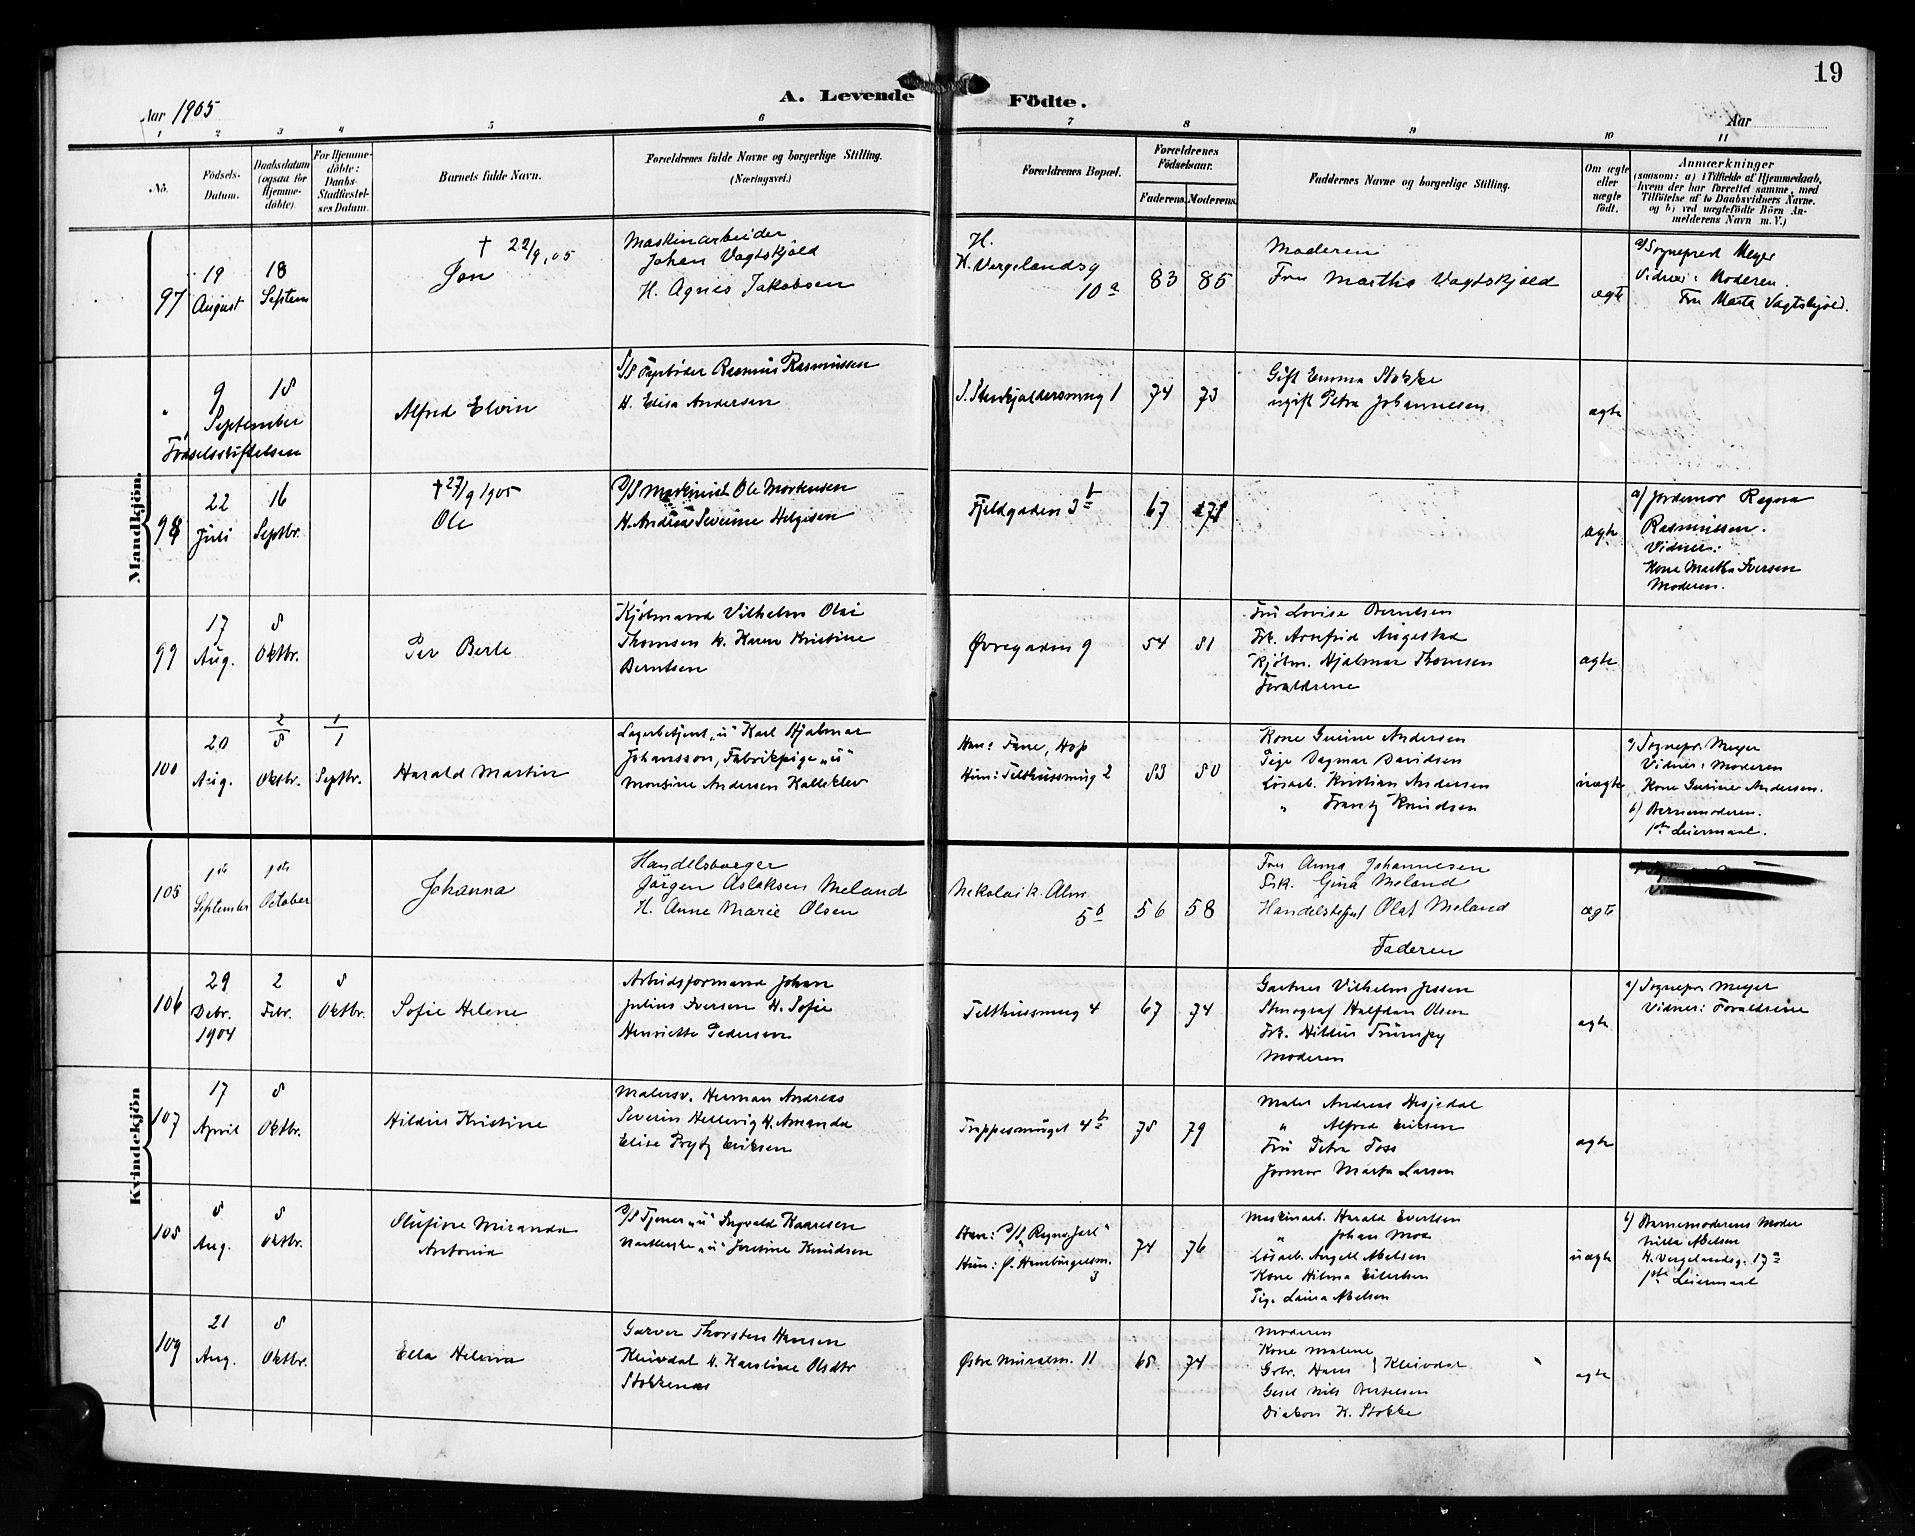 19
Aar 1905
A. Levende Födte.
Aar
1 2 3 4 5 6 7 8 9 10 11
No.
Födsels-Datum.
Daabsdatum (ogsaa for Hjemmedöbte).
For Hjemmedöbte: Daabs-Stadfæstelses Datum.
Barnets fulde Navn.
Forældrenes fulde Navne og borgerlige Stilling.
(Næringsvei.)
Forældrenes Bopæl.
Forældrenes Födselsaar.
Faderens. Moderens.
Faddernes Navne og borgerlige Stilling.
Om ægte eller uægte födt.
Anmærkninger
(saasom: a) i Tilfælde af Hjemmedaab, hvem der har forrettet samme, med Tilföielse af to Daabsvidners Navne, og b) ved uægtefödte Börn Anmelderens Navn m. V.)
Mandkjön.
97
19 August
18 Septem
† 22/9, 05
Jon
Maskinarbeider
Johan Vagtskjöld
H. Agnes Jakobsen
H.
H. Vergelandsg
10 a
83 85
Moderen
Fru Martha Vagtskjöld
ægte
a) Sognepred Meyer
Vidner: Moderen.
Fru Marta Vagtskjöld.
"
9 18
September
Födselsstiftelsen
Alfred Elvin
S/S Fyrböder Rasmus Rasmussen
H. Elisa Andersen
74 73
Gift Emma Stokke
ugift Petra Johannesen
ægte
98
22 Juli
16 Septbr.
† 27/9 1905
Ole
D/S Maskinist Ole Mortensen
H. Andrea Severine Helgesen
Fjeldgaden 3 b
67 71
ægte
a) Jordemor Ragna
Rasmussen.
Vidner:
Kone Martha Iversen
Moderen.
99
17 Aug.
8 Oktbr.
Per Berle
Kjöbmand Vilhelm Olai
Thomsen H. Karen Kristine
Berntsen
Øvregaden 9
54 81
Fru Lovise Berntsen
Frk. Arnfrid Augestad
Kjöbm. Hjalmar Thomsen
Forældrene
ægte
100
20 Aug.
2/8 Oktbr.
1/1 Septbr.
Harald Martin
Lagerbetjent "u" Karl Hjalmar
Johansson, Fabrikpige "u"
Monsine Andersen Kalleklev
Han: Fane, Hop
Hun: Telthussmug 2
83 80
Kone Gurine Andersen
Pige Dagmar Davidsen
Lösarb. Kristian Andersen
" Frantz Knudsen
uægte
a) Sognepr. Meyer
Vidner: Moderen
Kone Gurine Andersen.
b) Barnemoderen.
1ste Leiermaal.
Kvindekjön
105
1ste September
1ste October
Johanna
Handelsborger
Jörgen Aslaksen Meland
H. Anne Marie Olsen
Nikolaik. Alm.
5 b
56 58
Fru Anna Johannesen
Frk. Gina Meland
Handelsbetjent Olaf Meland
Faderen
ægte
106
29 Debr. 1904
2 Febr.
8 Oktbr.
Sofie Helene
Arbeidsformand Johan
Julius Iversen H. Sofie
Henriette Pedersen
Telthussmug 4
67 74
Gartner Vilhelm Jessen
Stenograf Halfdan Olsen
Frk. Hildur Trümpy
Moderen
ægte
a) Sognepr. Meyer
Vidner: Forældrene
107
17 April
8 Oktbr.
Hildur Kristine
Malersv. Herman Andreas
Severin Hellevig H. Amanda
Elise Prytz Eriksen
Trappesmuget 4 b
78 79
Maler Andreas Hesjedal
" Alfred Eriksen
Fru Petra Foss
Jormor Marta Larsen
ægte
108
8 Aug.
8 Oktbr.
Slufione Miranda
Antonia
D/S Tjener "u" Ingvald Kaaresen
"u" Josefine Knudsen
Han: D/S "Ragna Jarl"
Hun: Ø. Hamburgersm.
3
74 76
Maskinarb. Harald Evertsen
" Johan Moe
Lösarb. Angell Abelsen
Kone Hilma Eilertsen
Pige Laura Abelsen
uægte
b) Barnemoderens Moder
Milla Abelsen
H. Vergelandsg. 17 a
1ste Leiermaal
109
21 Aug.
8 Oktbr.
Ella Helena
Garver Thorsten Hansen
Kleivdal H. Karoline Olsdtr
Stokkenes
Østre Muralm. 11
68 74
Moderen
Kone Malene
Grbr. Hans } Kleivdal
Gesel Nils Bertelsen
Diakon K. Stokke
ægte